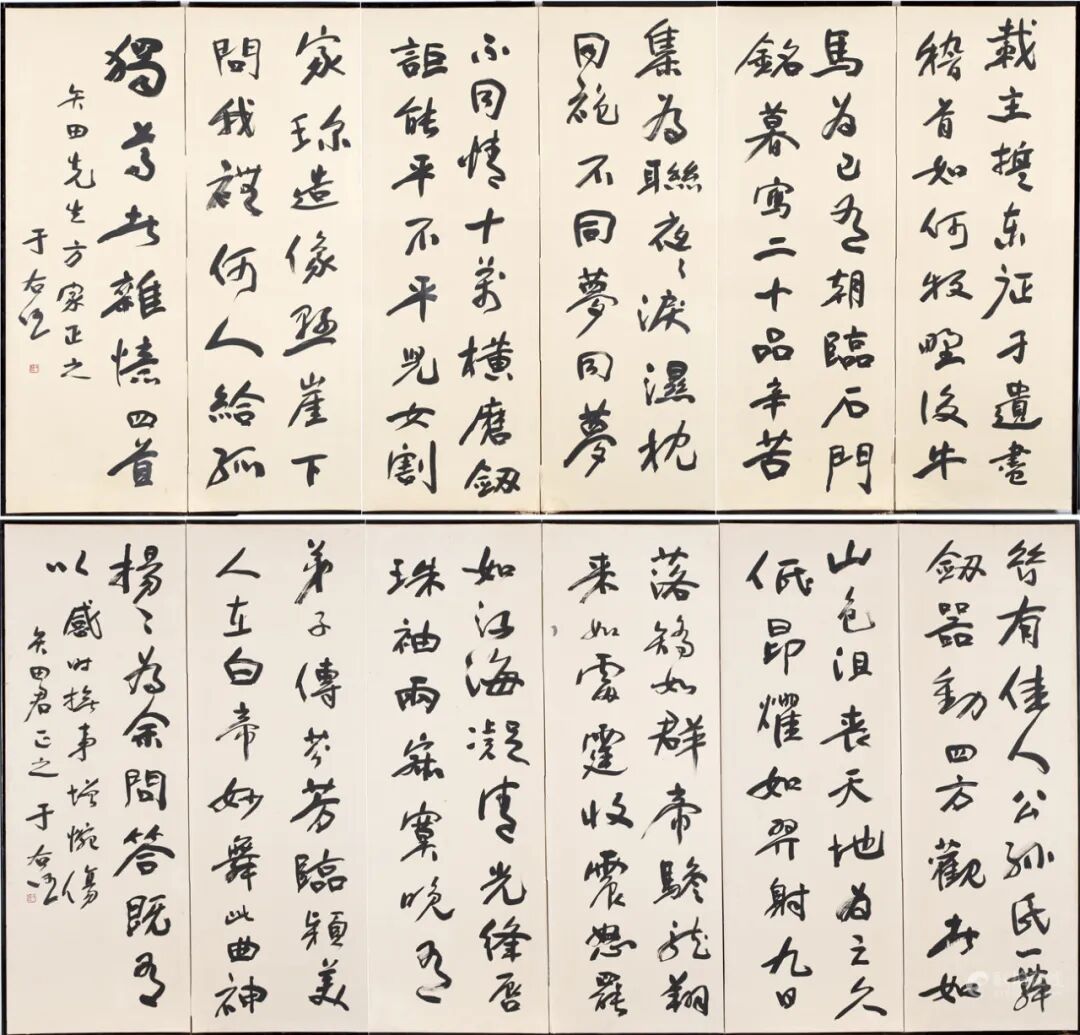 載主東征于遺書
稽首如何牧野後牛
馬為己有朝臨石門
銘暮寫二十品辛苦
集為聯夜〻淚濕枕
同袍不同夢同夢
不同情十萬橫磨劔
詎能平不平兒女割
家珍造像懸崖下
問我禮何人給孤
獨尊者雜憶四首
矢田先生方家正之
于右任
昔有佳人公孫氏一舞
劔器動四方觀者如
山色沮喪天地為之久
低昂燿如羿射九日
落矯如群帝驂龍翔
来如雷霆收震怒罷
如江海凝清光絳唇
珠袖兩寂寞晚有
弟子傳芬芳臨潁美
人在白帝妙舞此曲神
揚〻為余問答既有
以感時撫事增惋傷
矢田君正之 于右任